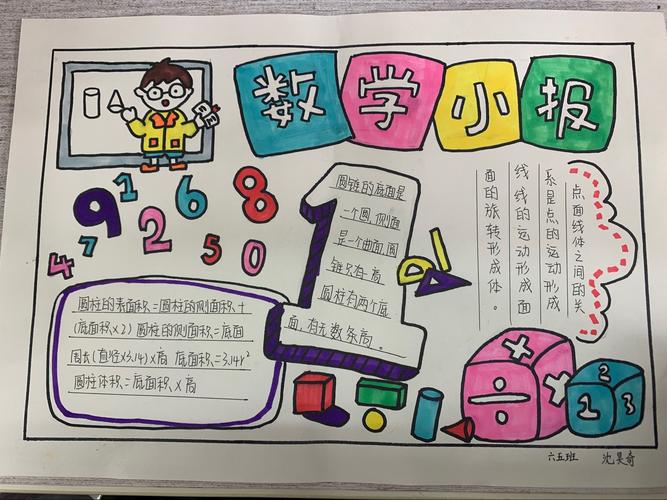 数学小报
1
6
8
9
2
7
4
5
0
圆锥的底面是
一个圆,侧面
是一个曲面,圆
锥只有一高
圆柱有两个底
面,有无数条高。
点面线体之间的关
系是点的运动形成
线线的运动形成面
面的旋转形成体。
圆柱的表面积=圆柱的侧面积+
(底面积×2) 圆柱的侧面积=底面
周长(直径×3.14)×高 底面积=3.14r²
圆柱体积=底面积×高
×
+
÷
2
1
3
六五班 沈昊奇